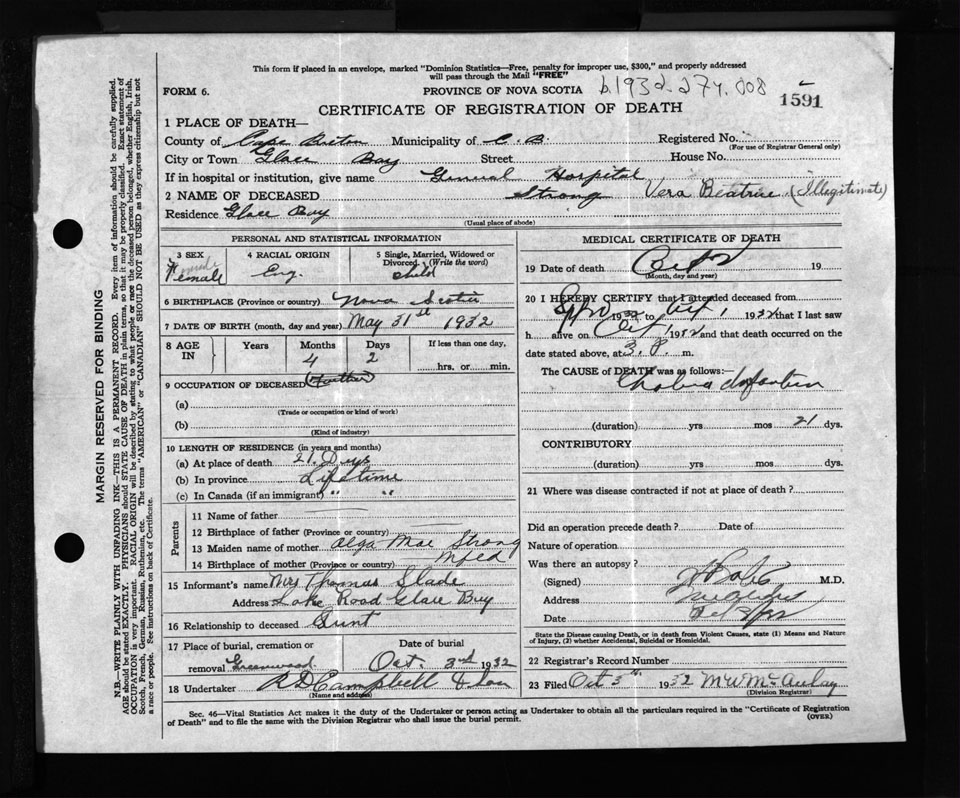 This form if placed in an envelope, marked "Dominion Statistics—Free, penalty for improper use, $300," and properly addressed
will pass through the Mail "FREE"
FORM 6. PROVINCE OF NOVA SCOTIA 1932-274.008 1591
CERTIFICATE OF REGISTRATION OF DEATH
1 PLACE OF DEATH—
County of Cape Breton Municipality of C. B Registered No.
(For use of Registrar General only)
City or Town Glace Bay Street House No.
If in hospital or institution, give name General Hospital
2 NAME OF DECEASED Strong Vera Beatrice (Illegitimate)
Residence Glace Bay
(Usual place of abode)
PERSONAL AND STATISTICAL INFORMATION
3 SEX 4 RACIAL ORIGIN 5 Single, Married, Widowed or
Divorced. (Write the word)
Female Eng. Child
6 BIRTHPLACE (Province or country) Nova Scotia
7 DATE OF BIRTH (month, day and year) May 31st 1932
8 AGE IN Years Months Days If less than one day,
4 2 hrs. or min.
9 OCCUPATION OF DECEASED
(a)
(Trade or occupation or kind of work)
(b)
(Kind of industry)
10 LENGTH OF RESIDENCE (in years and months)
(a) At place of death 21. Days
(b) In province Lifetime
(c) In Canada (if an immigrant) " "
Parents
11 Name of father
12 Birthplace of father (Province or country)
13 Maiden name of mother Olga Mae Strong
14 Birthplace of mother (Province or country) Nfld
15 Informant's name Mrs Thomas Slade
Address Lake Road Glace Bay
16 Relationship to deceased Aunt
17 Place of burial, cremation or Date of burial
removal Greenwood Oct 3rd 1932
18 Undertaker R D Campbell & Son
(Name and address)
MEDICAL CERTIFICATE OF DEATH
19 Date of death Oct 19
(Month, day and year)
20 I HEREBY CERTIFY that I attended deceased from
1932 to Oct 1 1932 that I last saw
h alive on Oct 1 1932 and that death occurred on
date stated above, at 3. P. m.
The CAUSE of DEATH was as follows:
Cholera Infantum
(duration) yrs mos 21 dys.
CONTRIBUTORY
(duration) yrs mos. dys.
21 Where was disease contracted if not at place of death?
Did an operation precede death? Date of
Nature of operation
Was there an autopsy?
(Signed) M.D.
Address
Date
State the Disease causing Death, or in death from Violent Causes, state (1) Means and Nature
of Injury, (2) whether Accidental, Suicidal or Homicidal.
22 Registrar's Record Number
23 Filed Oct 3rd 1932 M W McAulay
(Division Registrar)
Sec. 46—Vital Statistics Act makes it the duty of the Undertaker or person acting as Undertaker to obtain all the particulars required in the "Certificate of Registration
of Death" and to file the same with the Division Registrar who shall issue the burial permit. (OVER)
MARGIN RESERVED FOR BINDING
N.B.—WRITE PLAINLY WITH UNFADING INK—THIS IS A PERMANENT RECORD. Every item of information should be carefully supplied.
AGE should be stated EXACTLY. PHYSICIANS should STATE CAUSE OF DEATH in plain terms, so that it may be properly classified. Exact statement of
OCCUPATION is very important. RACIAL ORIGIN will be described by stating to what people or race the deceased person belonged, whether English, Irish,
Scotch, French, German, Russian, Ruthenian, etc. The terms "AMERICAN" or "CANADIAN" SHOULD NOT BE USED as they express citizenship but not
a race or people. See instructions on back of Certificate.